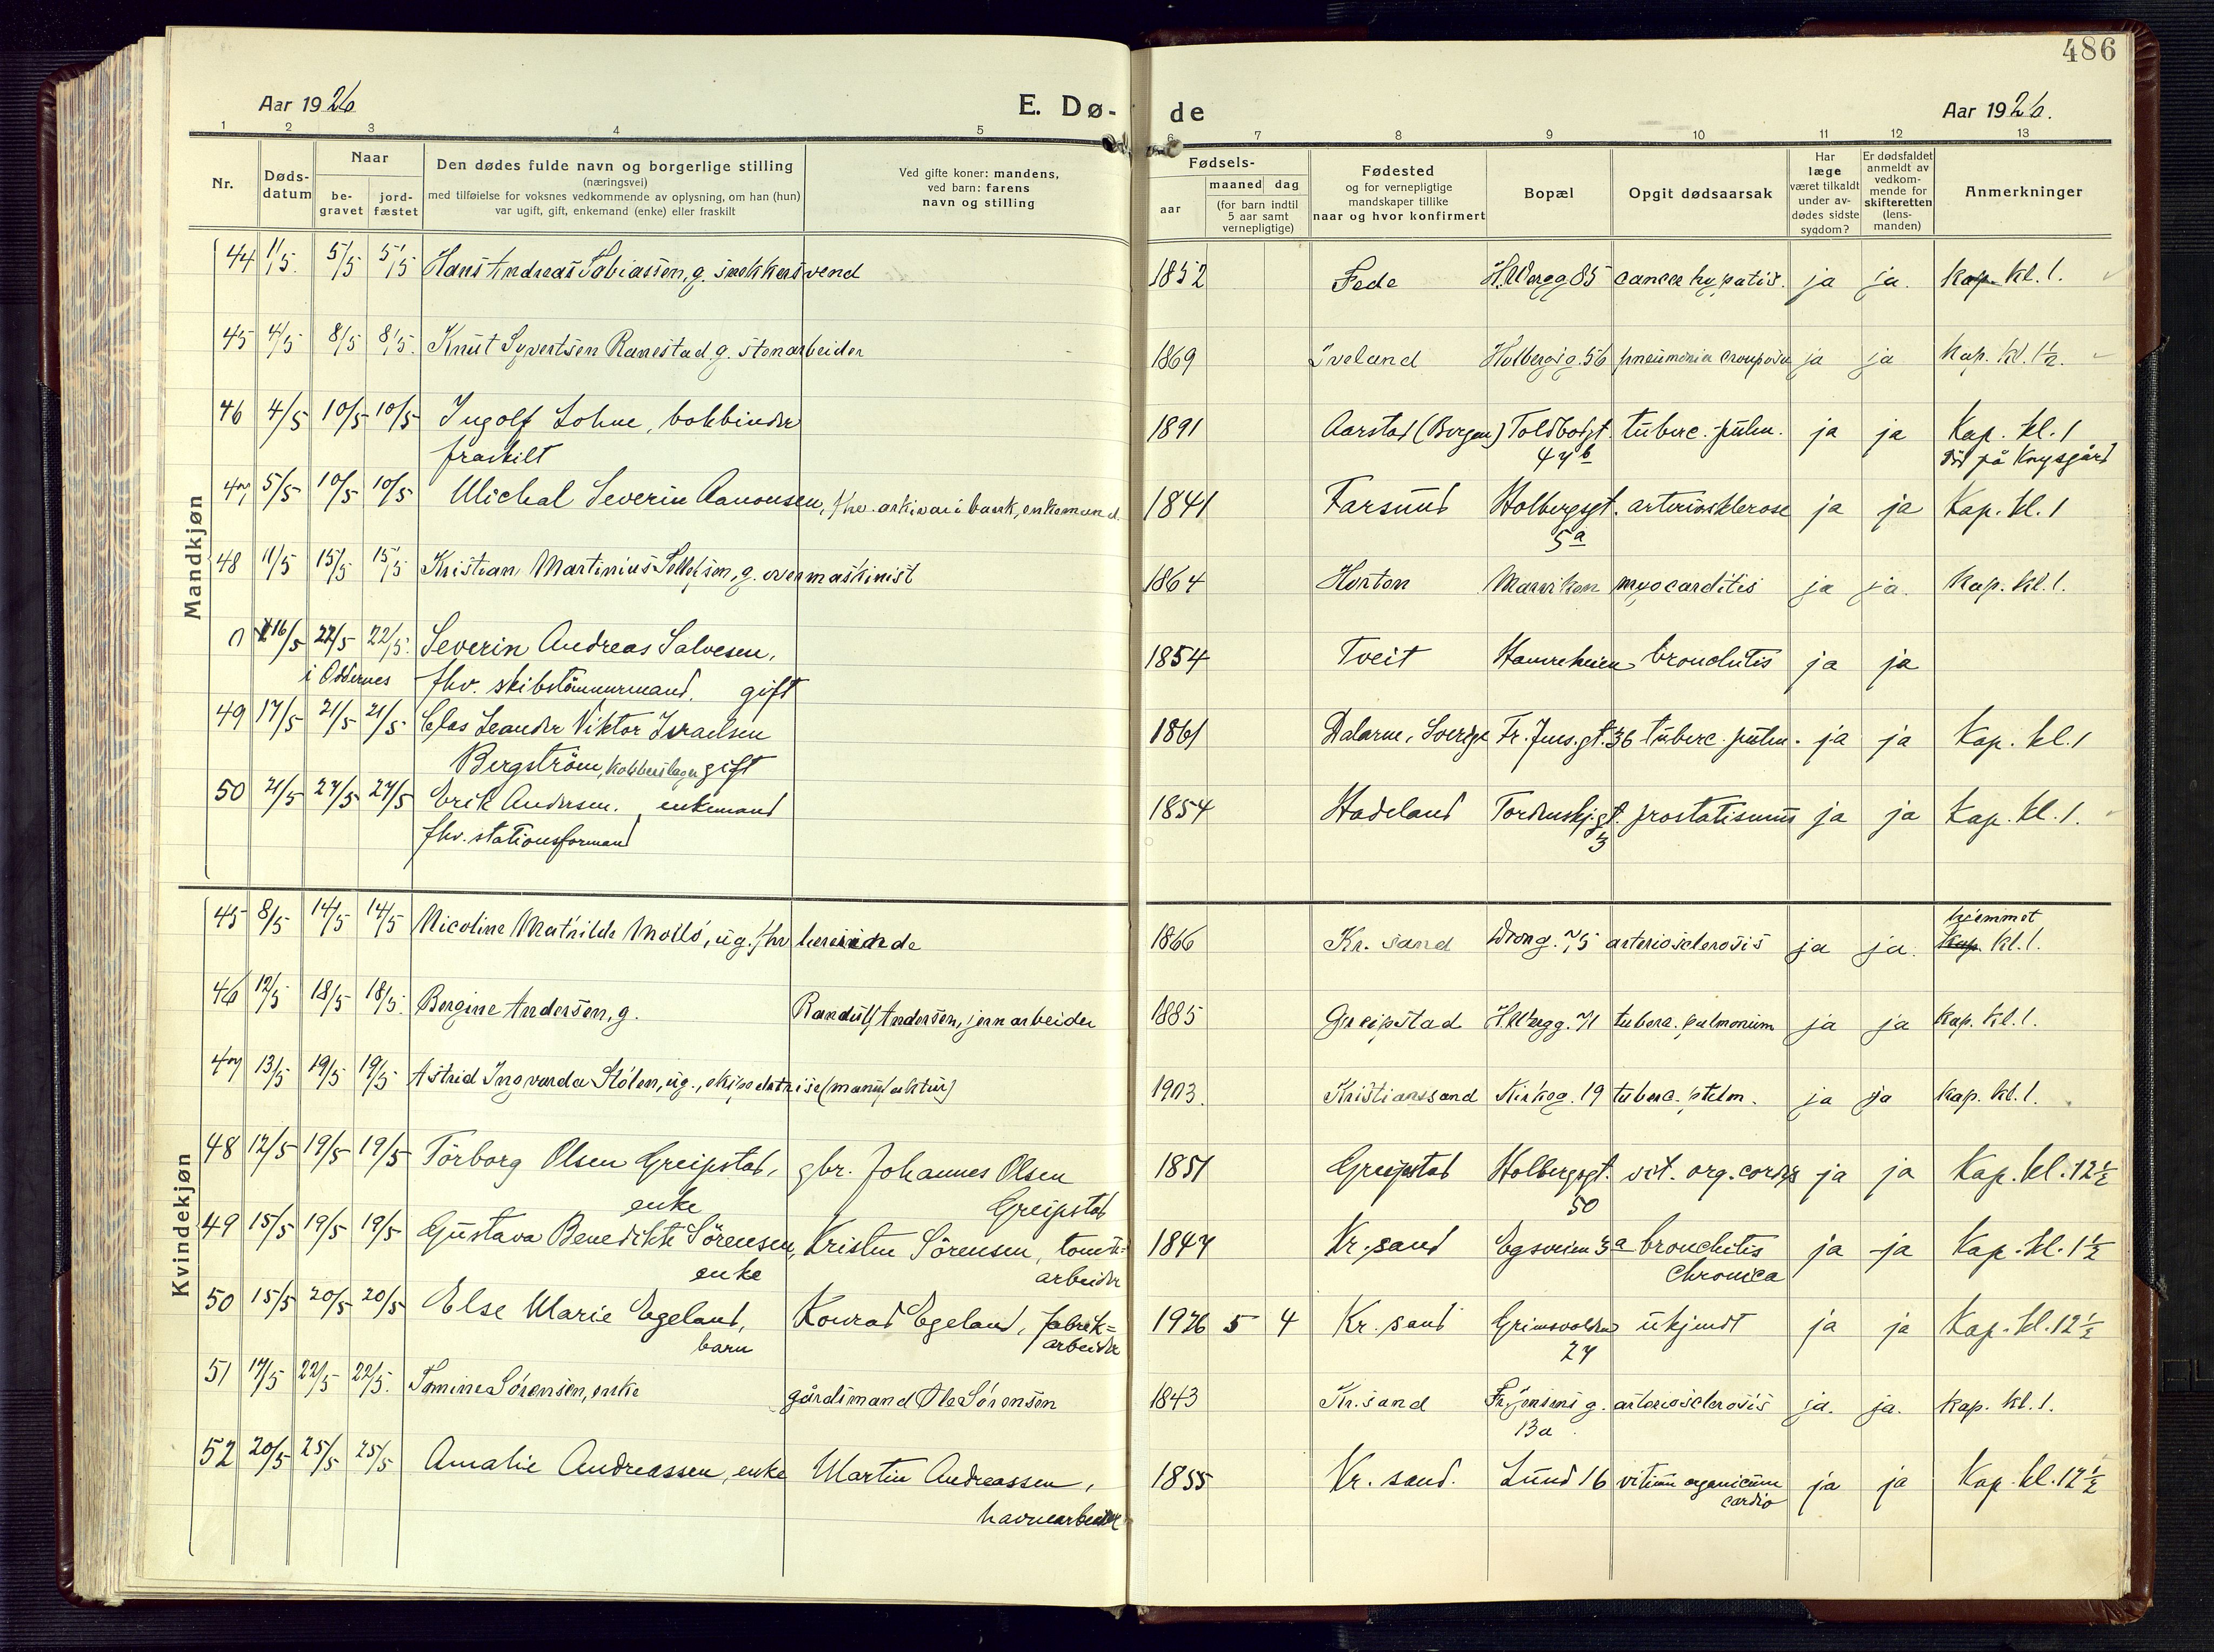 486
Aar 1926
E. Dø- de
Aar 1926.
1 2 3 4 5 6 7 8 9 10 11 12 13
Nr.
Døds-
datum
Naar
be-
gravet
jord-
fæstet
Den dødes fulde navn og borgerlige stilling
(næringsvei)
med tilføielse for voksnes vedkommende av oplysning, om han (hun)
var ugift, gift, enkemand (enke) eller fraskilt
Ved gifte koner: mandens,
ved barn: farens
navn og stilling
Fødsels-
aar
maaned dag
(for barn indtil
5 aar samt
vernepligtige)
Fødested
og for vernepligtige
mandskaper tillike
naar og hvor konfirmert
Bopæl
Opgit dødsaarsak
Har
læge
været tilkaldt
under av-
dødes sidste
sygdom?
Er dødsfaldet
anmeldt av
vedkom-
mende for
skifteretten
(lens-
manden)
Anmerkninger
Mandkjøn
44 1/5. 5/5 5/5 Hans Andreas Tobiassen, g. snekkersvend 1852 Fede H.Wergg 85 cancer hypatis. ja ja. Kap. kl. 1.
45 4/5 8/5 8/5. Knut Syvertsen Ranestad g. stenarbeider 1869 Iveland Holbergsg. 56 pneumonia crouposa ja ja Kap. kl. 1½.
46 4/5 10/5 10/5 Ingolf Lohne, bokbinder 1891 Aarstad (Bergen) Toldbodgt. tuberc. pulm. ja ja Kap. kl. 1
fraskilt 47b död på Kongsgård
47 5/5 10/5 10/5 Michal Severin Aanonsen, fhv. arkivar i bank, enkemand. 1841 Farsund Holbergsgt. arteriosklerose ja ja Kap. kl. 1
5a
48 11/5 15/5 15/5 Kristian Martinius Sellefsen, g. overmaskinist 1864 Horten Marviken myocarditis ja ja. Kap. kl. 1.
0 16/5 22/5 22/5. Severin Andreas Salvesen, 1854 Tveit Hamreheien bronchitis ja ja
i Oddernes fhv. skibstömmermand. gift
49 17/5 21/5 21/5. Clas Leander Viktor Israelsen 1861 Dalarne, Sverige Fr. Jens.gt. 36 tuberc. pulm. ja ja Kap. kl. 1
Bergström, kobberslager gift
50 21/5 27/5 27/5 Erik Andersen. enkemand 1854 Hadeland Tordenskj.gt. prostatismus ja ja Kap. kl. 1.
fhv. stationsformand 3
Kvindekjøn
45 8/5 14/5 14/5 Nicoline Mathilde Moilö, ug. fhv lererinde 1866 Kr. sand Dron g. 75 arteriosclerosis ja ja. hjemmet
Kap. kl. 1.
46 12/5 18/5 18/5. Bergine Andersen, g. Randulf Andersen, jernarbeider 1885 Greipstad H.Wergg. 71 tuberc. pulmonum ja ja Kap. kl. 1.
47 13/5 19/5 19/5 Astrid Ingvarda Stölen, ug., ekspedatrise (manufaktur) 1903. Kristianssand Kirkeg. 19 tuberc. pulm. ja ja Kap. kl. 1.
48 12/5 19/5 19/5 Törborg Olsen Greipstad, gbr. Johannes Olsen 1851 Greipstad Holbergsgt. vit. org. cordis ja ja Kap. kl. 12½
enke Greipstad 50
49 15/5 19/5 19/5 Gustava Benedikte Sörensen, Kristen Sörensen, tomte- 1847 Kr. sand Egsveien 3a bronchitis ja ja Kap. kl. 1½
enke arbeider chronica
50 15/5 20/5 20/5 Else Marie Egeland, Konrad Egeland, fabrik= 1926 5 4 Kr. sand Grimsvolden ukjendt ja ja Kap. kl. 12½
barn arbeider 27
51 17/5 22/5 22/5. Tomine Sörensen, enke gårdsmand Ole Sörensen 1843 Kr. sand Fr. Jensens g. arteriosclerosis ja. ja. Kap. kl. 1.
13a
52 20/5 25/5 25/5 Amalie Andreassen, enke Martin Andreassen, 1855 Kr. sand. Lund 16 vitium organicum ja ja Kap. kl. 12½
havnearbeider cordis